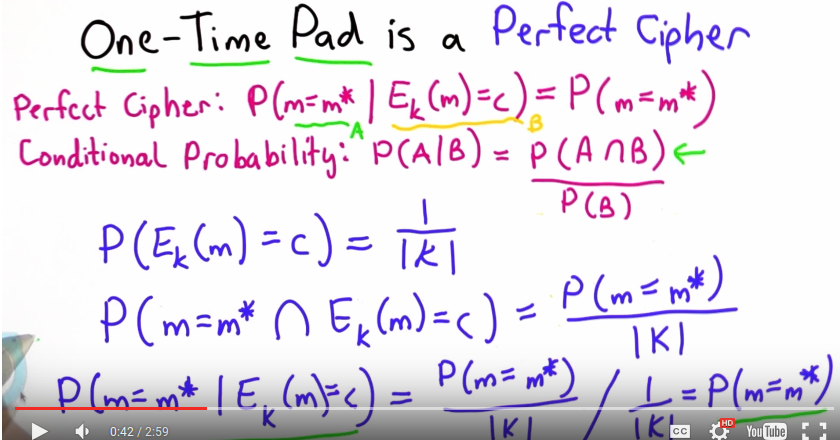 One-Time Pad is a Perfect Cipher
Perfect Cipher: P(m=m* | E_k(m)=c) = P(m=m*)
A B
Conditional Probability: P(A|B) = P(A∩B) / P(B) ←
P(E_k(m)=c) = 1 / |K|
P(m=m* ∩ E_k(m)=c) = P(m=m*) / |K|
P(m=m* | E_k(m)=c) = P(m=m*) / |K| / 1 / |K| = P(m=m*)
0:42 / 2:59 CC HD YouTube